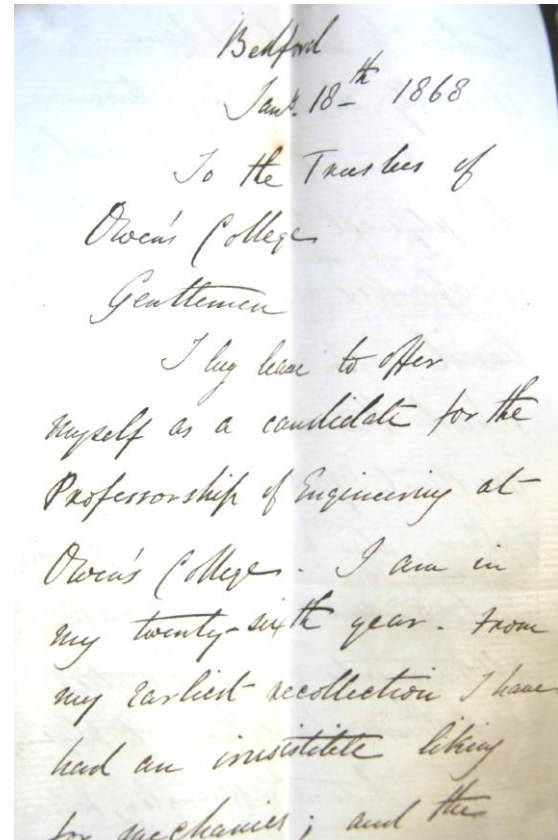 Bedford
Jany. 18th 1868
To the Trustees of
Owen's College
Gentlemen
I beg leave to offer
myself as a candidate for the
Professorship of Engineering at
Owen's College. I am in
my twenty-sixth year. From
my earliest recollection I have
had an irresistible liking
for mechanics; and the